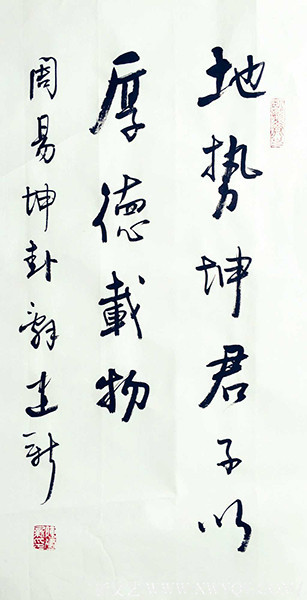 地势坤君子以
厚德載物
周易坤卦辞建新